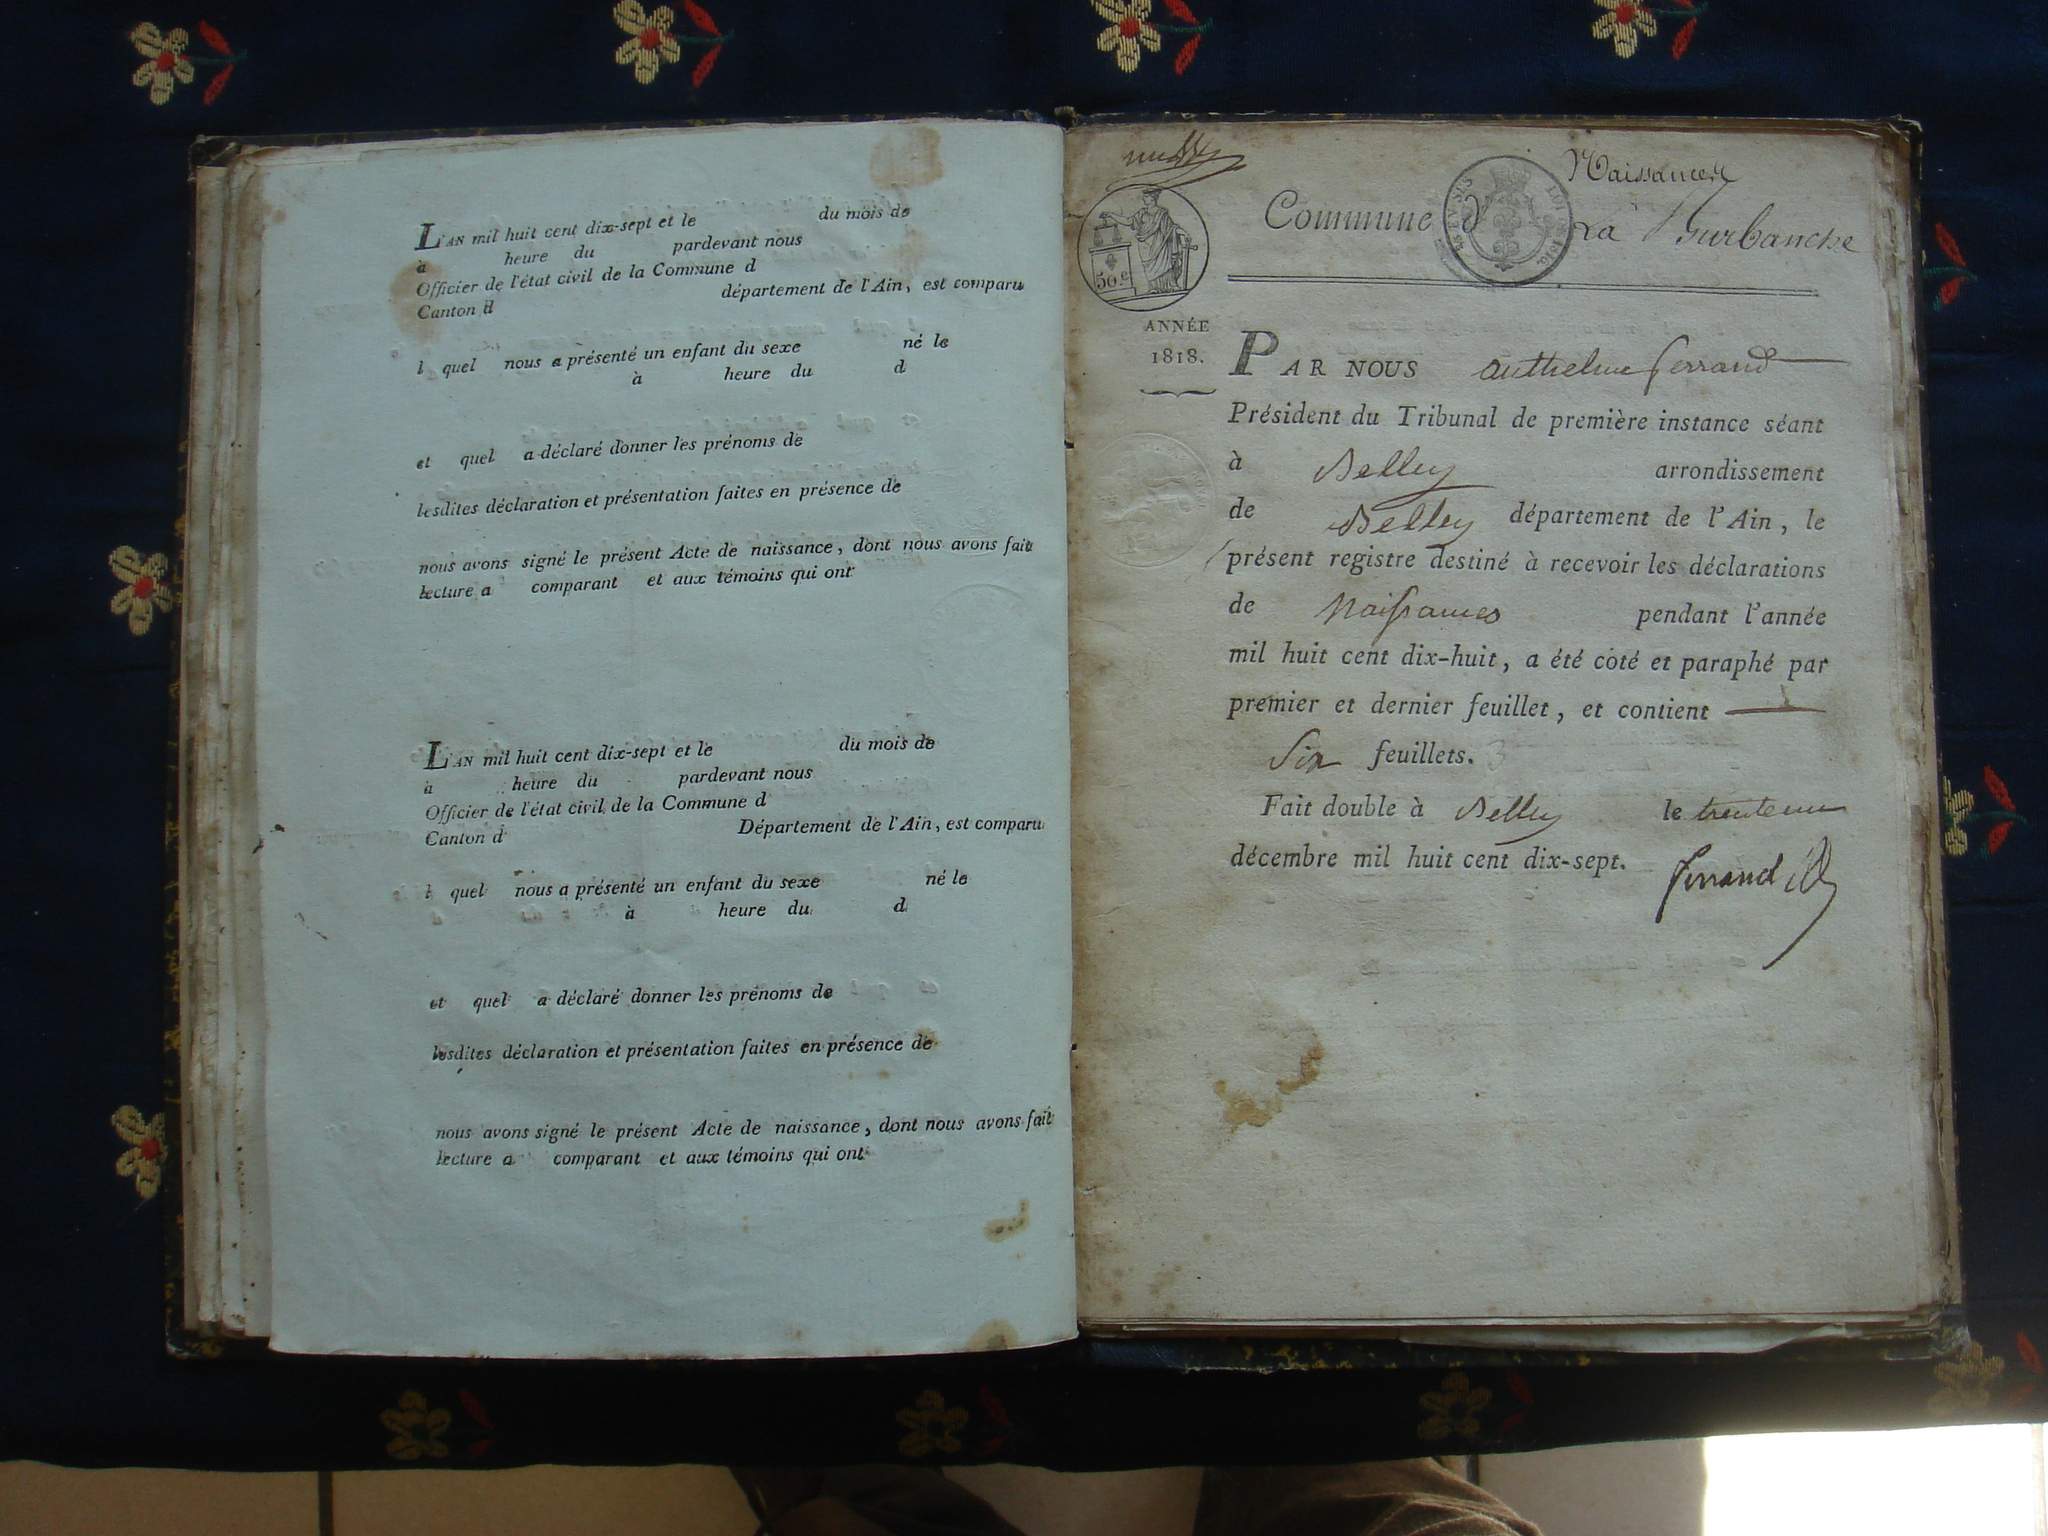 L'AN mil huit cent dix-sept et le du mois de
à heure du pardevant nous
Officier de l'état civil de la Commune d
Canton d département de l'Ain, est comparu
l quel nous a présenté un enfant du sexe né le
à heure du d
et quel a déclaré donner les prénoms de
lesdites déclaration et présentation faites en présence de
nous avons signé le présent Acte de naissance, dont nous avons fait
lecture a comparant et aux témoins qui ont
L'AN mil huit cent dix-sept et le du mois de
à heure du pardevant nous
Officier de l'état civil de la Commune d
Canton d Département de l'Ain, est comparu
l quel nous a présenté un enfant du sexe né le
à heure du d
et quel a déclaré donner les prénoms de
lesdites déclaration et présentation faites en présence de
nous avons signé le présent Acte de naissance, dont nous avons fait
lecture a comparant et aux témoins qui ont
Naissances
Commune d La Burbanche
50 c
ANNÉE
1818.
PAR NOUS Anthelme Ferrand
Président du Tribunal de première instance séant
à Belley arrondissement
de Belley département de l'Ain, le
présent registre destiné à recevoir les déclarations
de Naissances pendant l'année
mil huit cent dix-huit, a été coté et paraphé par
premier et dernier feuillet, et contient
Six feuillets. 3
Fait double à Belley le trente un
décembre mil huit cent dix-sept.
Ferrand